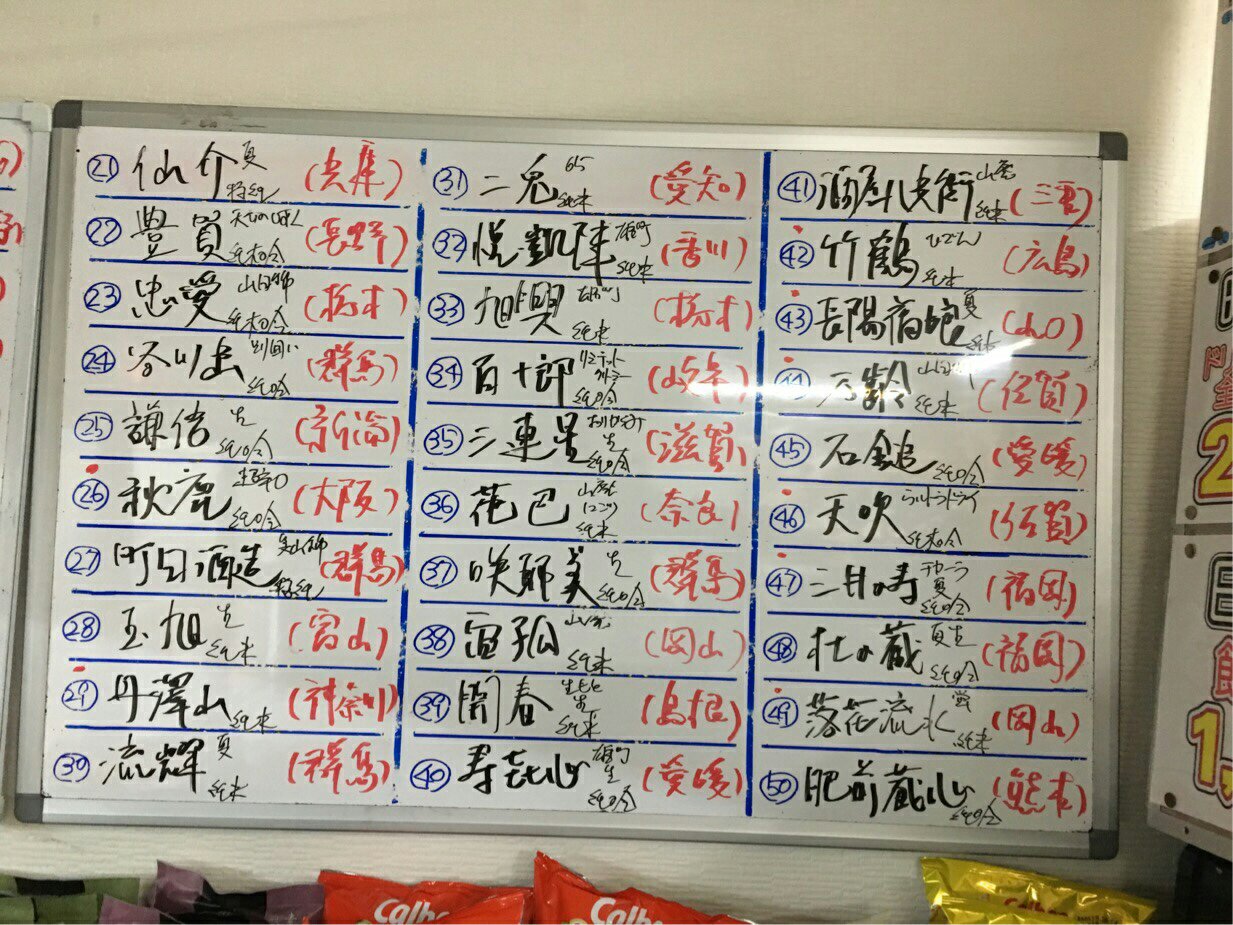 ㉑ 仙介 夏 特純 (兵庫)
㉒ 豊賀 純米吟 (長野)
㉓ 忠愛 山田錦 純米吟 (栃木)
㉔ 谷川岳 別囲い 純吟 (群馬)
㉕ 謙信 生 純吟 (新潟)
㉖ 秋鹿 純吟 (大阪)
㉗ 町田酒造 美山錦 特純 (群馬)
㉘ 玉旭 生 純米 (富山)
㉙ 丹澤山 純米 (神奈川)
㉚ 流輝 夏 純米 (群馬)
㉛ 二兎 65 純米 (愛知)
㉜ 悦凱陣 雄町 純米 (香川)
㉝ 旭興 雄町 純米 (栃木)
㉞ 百十郎 純吟 (岐阜)
㉟ 三連星 生 純吟 (滋賀)
㊱ 花巴 山廃 にごり 純米 (奈良)
㊲ 咲耶美 生 純吟 (群馬)
㊳ 山廃 純米 (岡山)
㊴ 開春 生もと 生 純米 (島根)
㊵ 寿喜心 雄町 生 純吟 (愛媛)
㊶ 酒屋八兵衛 山廃 純米 (三重)
㊷ 竹鶴 ひでん 純米 (広島)
㊸ 長陽福娘 夏 純米 (山口)
㊹ 六齢 山田錦 純米 (佐賀)
㊺ 石鎚 純吟 (愛媛)
㊻ 天吹 ウルトラドライ 純米吟 (佐賀)
㊼ 三井の寿 チカーラ 夏 純吟 (福岡)
㊽ 杜の蔵 夏生 純吟 (福岡)
㊾ 落花流水 蛍 純米 (岡山)
㊿ 肥前蔵心 純吟 (熊本)
Calbee
Calbee
Calbee